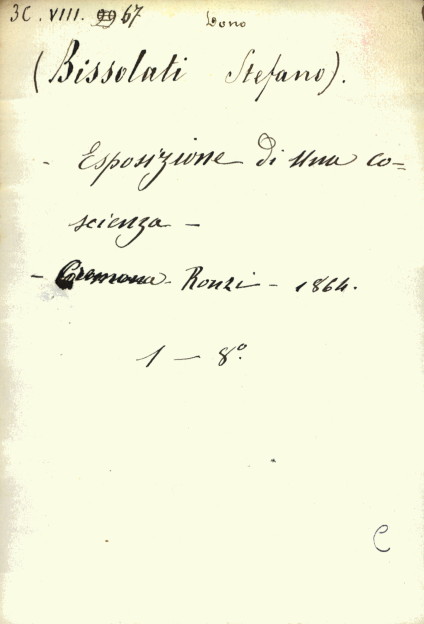 3C. VIII. 67 Dono
(Bissolati Stefano).
- Esposizione di una co=
scienza -
- Cremona - Ronzi - 1864.
1 - 8º.
C